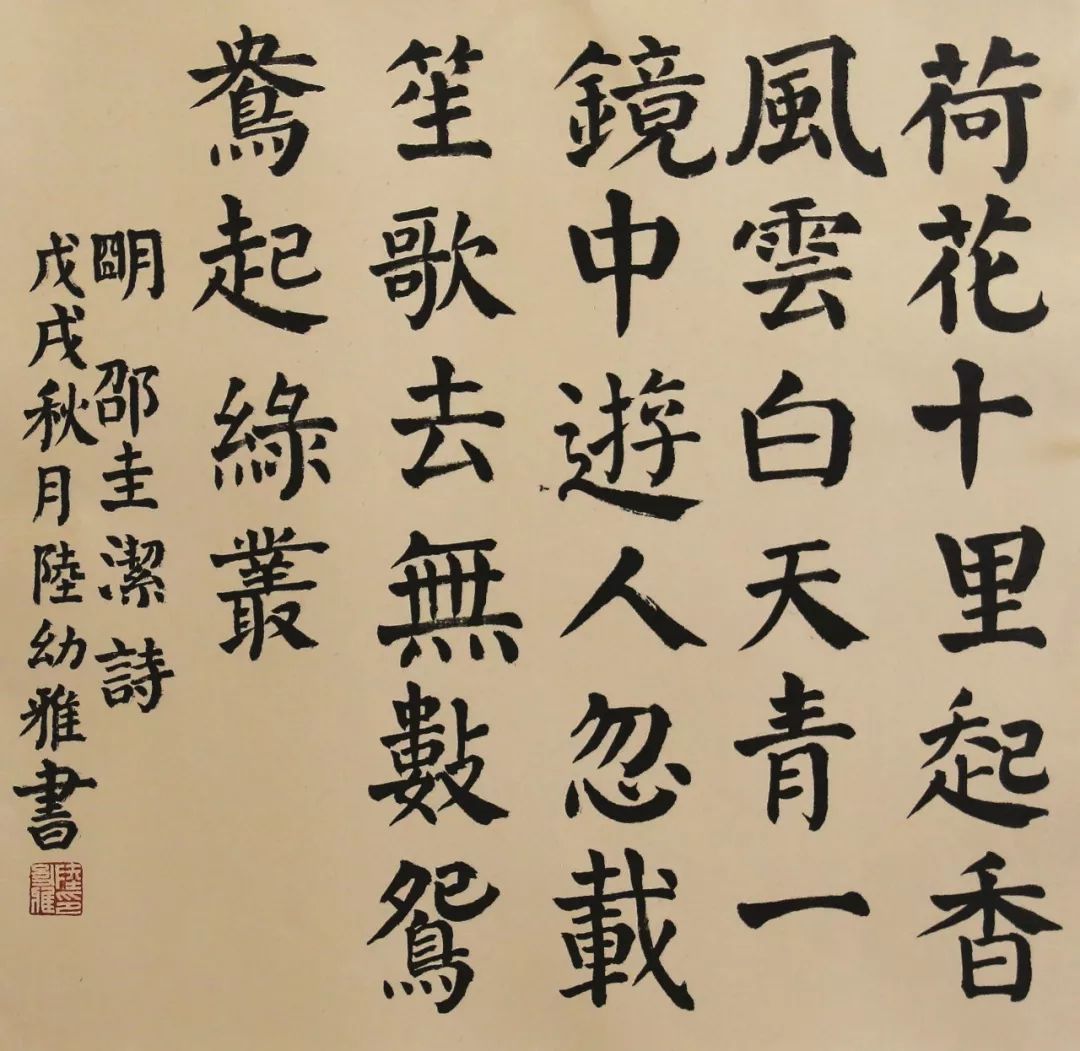 荷花十里起香
風雲白天青一
鏡中遊人忽載
笙歌去無數鴛
鴦起綠叢
明 邵圭潔詩
戊戌秋月陸幼雅書
陸幼雅印